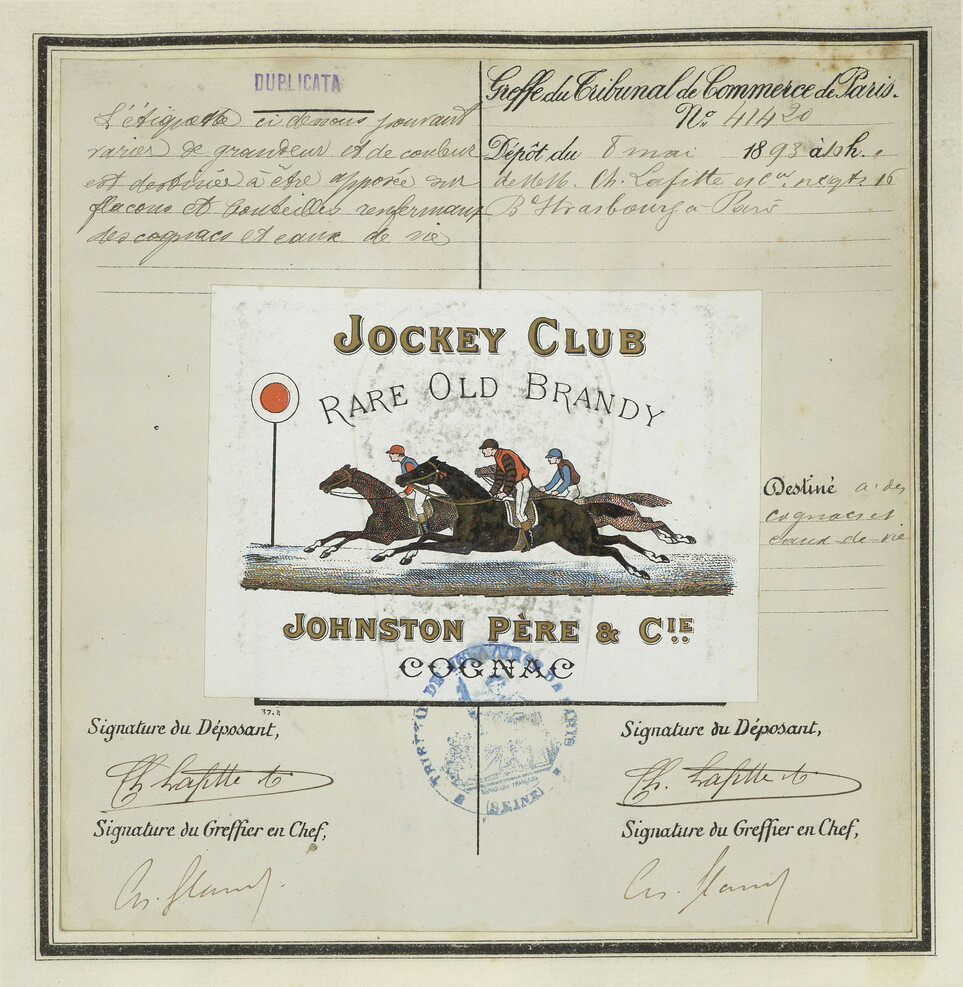 DUPLICATA
L'étiquette ci dessous pouvant
varier de grandeur et de couleur
est destinée à être apposée sur
flacons et bouteilles renfermant
des cognacs et eaux de vie
Greffe du Tribunal de Commerce de Paris.
No. 41420
Dépôt du 8 mai 1893 à h.
de MM. Ch. Lafitte et Cie, négts 16
Bd Strasbourg à Paris
JOCKEY CLUB
RARE OLD BRANDY
JOHNSTON PÈRE & CIE
COGNAC
Destiné à des
cognacs et
eaux-de-vie
37.2
TRIBUNAL DE COMMERCE DE PARIS
(SEINE)
Signature du Déposant,
Ch. Lafitte
Signature du Greffier en Chef,
Signature du Déposant,
Ch. Lafitte
Signature du Greffier en Chef,